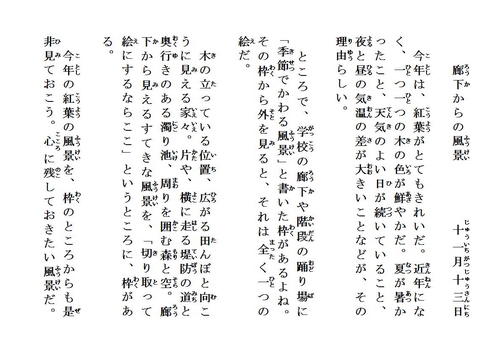 廊下からの風景　十一月十三日
今年は、紅葉がとてもきれいだ。近年にな
く、一つ一つの木の色が鮮やかだ。夏が暑か
ったこと、天気のよい日が続いていること、
夜と昼の気温の差が大きいことなどが、その
理由らしい。
ところで、学校の廊下や階段の踊り場に
「季節でかわる風景」と書いた枠があるよね。
その枠から外を見ると、それは全く一つの
絵だ。
木の立っている位置、広がる田んぼと向こ
うに見える家々。片や、横に走る堤防の道と
奥行きのある濁り池、周りを囲む森と空。廊
下から見えるすてきな風景を、「切り取って
絵にするならここ」というところに、枠があ
る。
今年の紅葉の風景を、枠のところからも是
非見ておこう。心に残しておきたい風景だ。